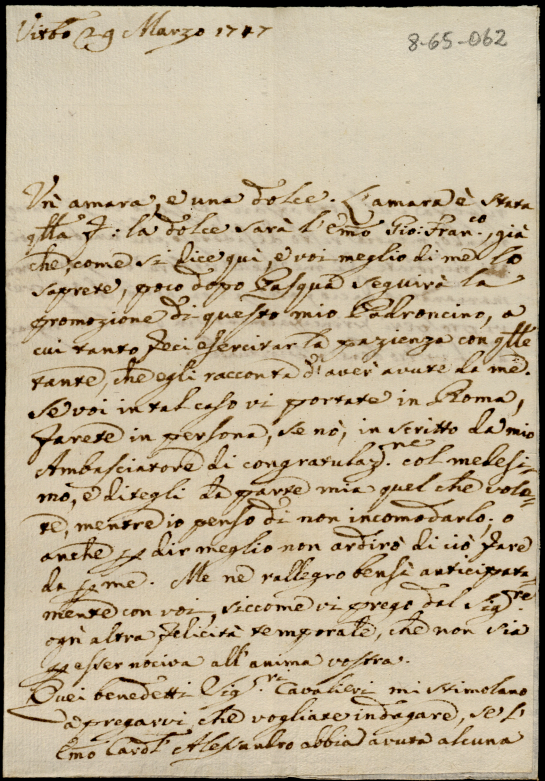 Vitbo 29 Marzo 1747
8-65-062
Un amara, e una dolce. L'amara è stata
qlla J: la dolce sarà l'Emo Gio: Fran.co, già
che, come si dice qui, e voi meglio di me lo
saprete, poco dopo Pasqua seguirà la
promozione di questo mio Padroncino, a
cui tanto feci esercitar la pazienza con qlle
tante, che egli racconta d'aver avute da me.
Se voi in tal caso vi portate in Roma,
farete in persona, se nò, in scritto da mio
Ambasciatore di congratulaz.ne col medesi-
mo, e ditegli da parte mia quel che vole-
te, mentre io penso di non incomodarlo; o
anche p dir meglio non ardirò di ciò fare
da p me. Me ne rallegro bensì anticipata
mente con voi, siccome vi prego dal Sig.re
ogn altra felicità temporale, che non sia
p esser nociva all'anima vostra.
Quei benedetti Sig.ri Cavalieri mi stimolano
a pregarvi, che vogliate indagare, se l'
Emo Card. Alessandro abbia avuta alcuna